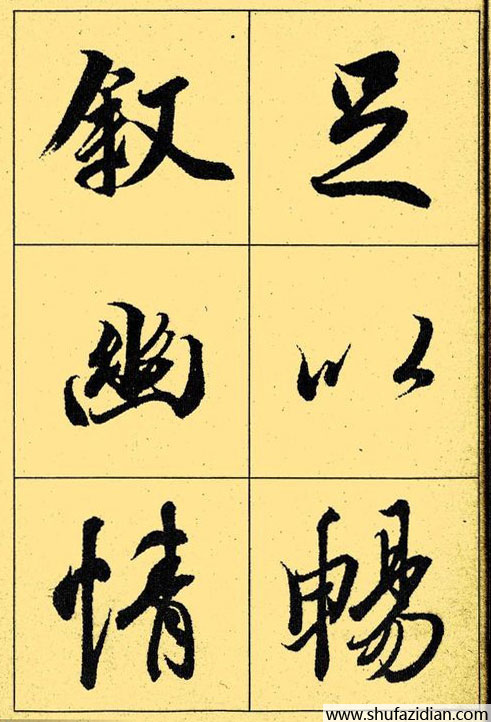 足以暢
叙幽情
www.shufazidian.com